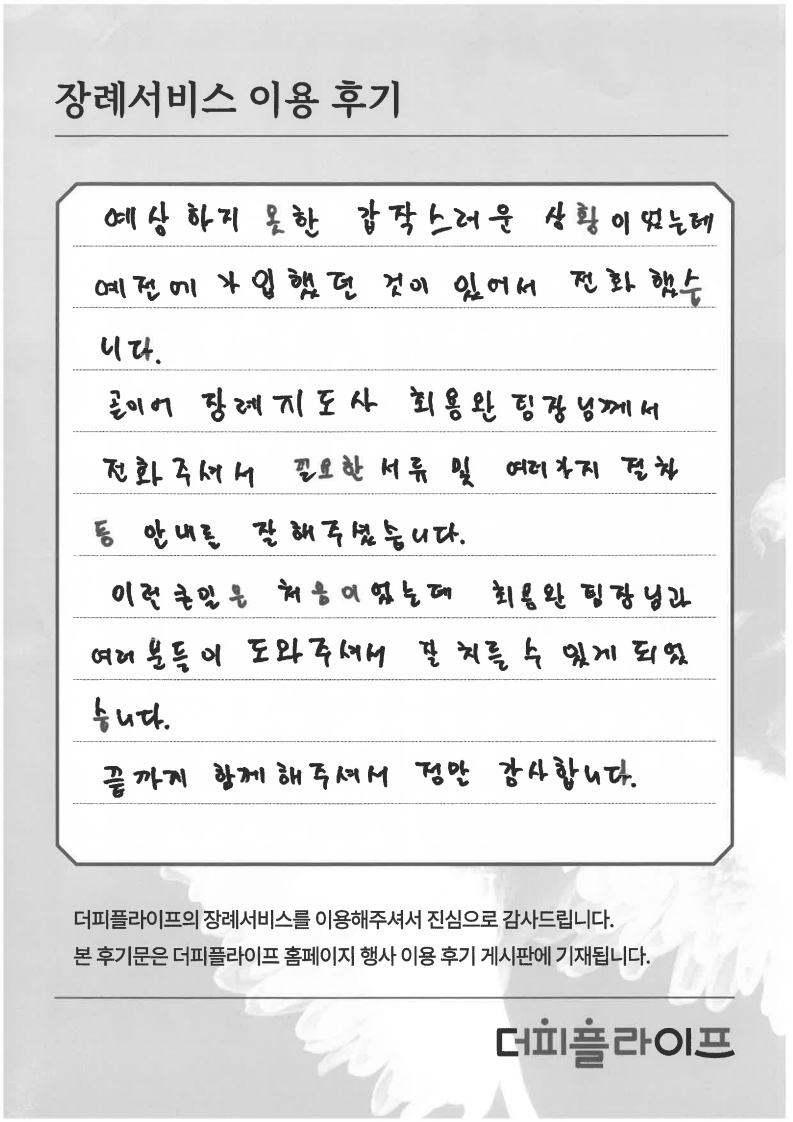 장례서비스 이용 후기
예상 하지 못한 갑작스러운 상황이었는데
예전에 가입했던 것이 있어서 전화했습
니다.
곧이어 장례지도사 최용완 팀장님께서
전화주셔서 필요한 서류 및 여러가지 절차
등 안내를 잘 해주셨습니다.
이런 큰일은 처음이었는데 최용완 팀장님과
여러 분들이 도와주셔서 잘 치를 수 있게 되었
습니다.
끝까지 함께해주셔서 정말 감사합니다.
더피플라이프의 장례서비스를 이용해주셔서 진심으로 감사드립니다.
본 후기문은 더피플라이프 홈페이지 행사 이용 후기 게시판에 기재됩니다.
더피플라이프